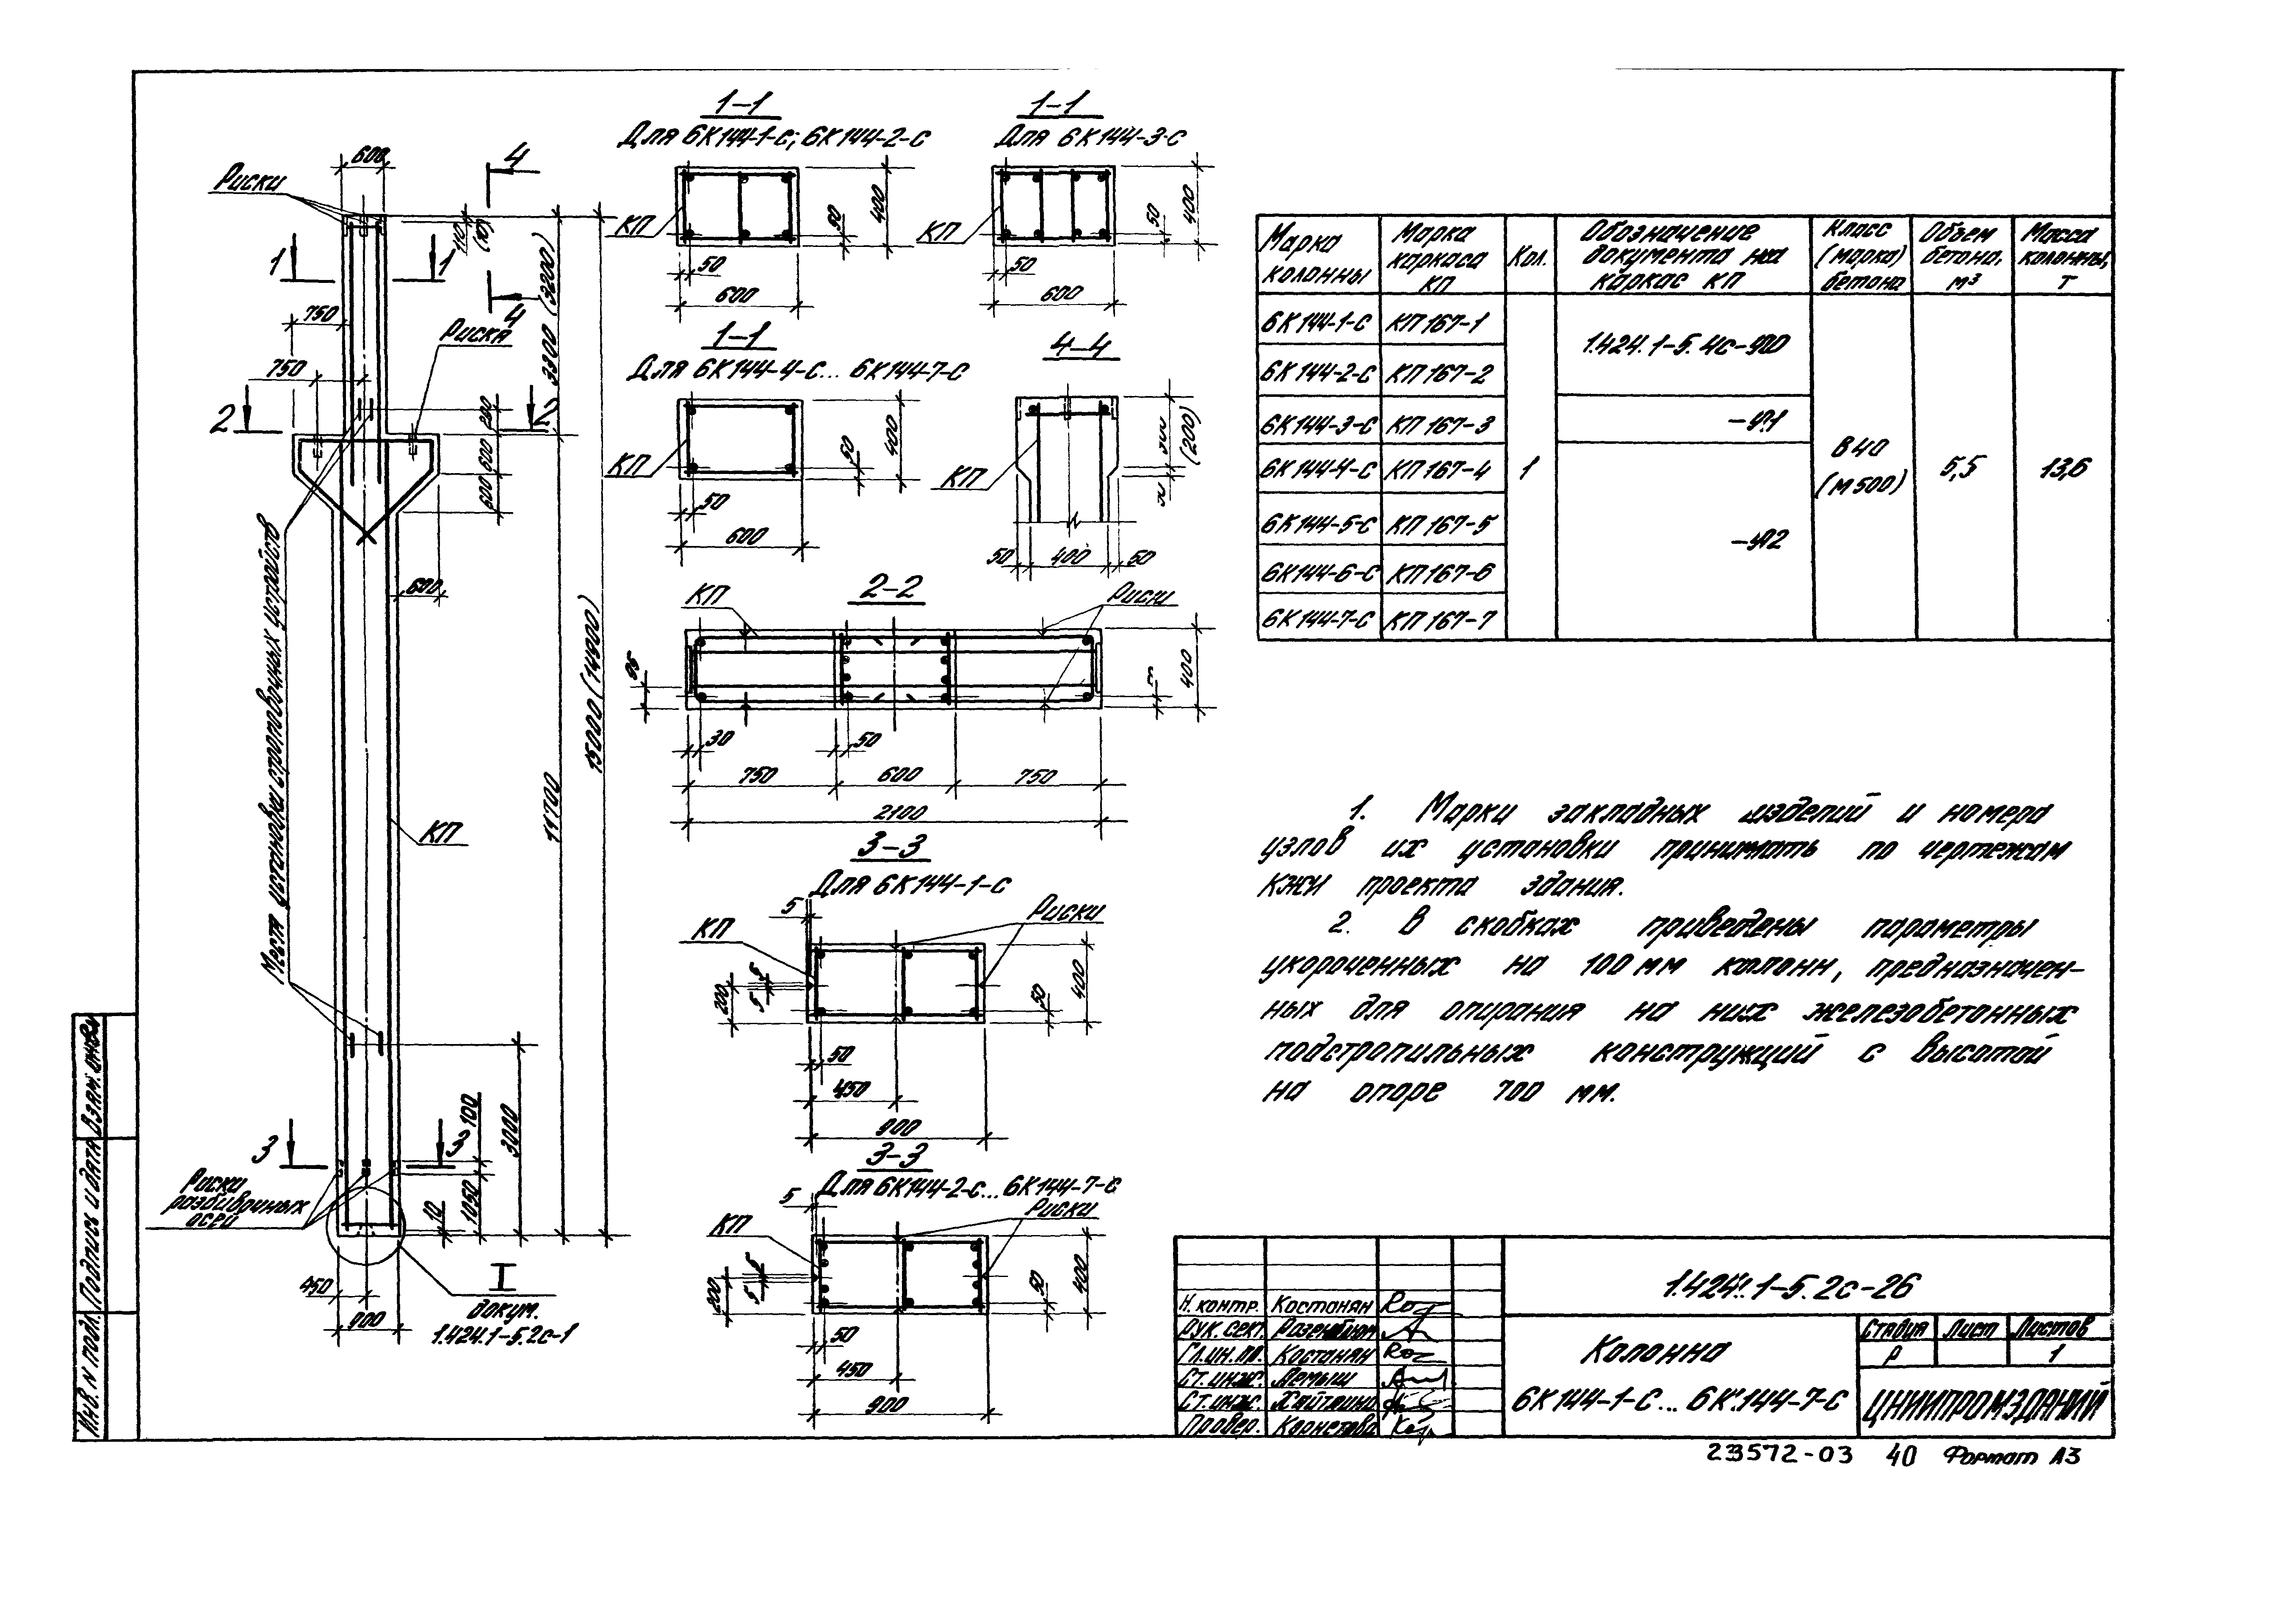 1-1
Для 6К144-1-С; 6К144-2-С
КП
50
400
50
600
1-1
Для 6К144-3-С
КП
50
400
50
600
1-1
Для 6К144-4-С... 6К144-7-С
КП
50
400
50
600
4-4
КП
(200)
50
400
50
600
Риски
4
4
110
(10)
1
1
750
Риска
750
2
2
3300 (3200)
600
600
600
Места установки строповочных устройств
15000 (14900)
11700
КП
3000
3
3
100
1050
10
Риски
разбивочных
осей
450
900
I
докум.
1.424.1-5.2с-1
2-2
КП
Риски
400
30
50
750
600
750
2100
3-3
Для 6К144-1-С
5
КП
Риски
200
5
5
50
400
50
450
900
3-3
Для 6К144-2-С... 6К144-7-С
5
КП
Риски
200
5
5
50
400
50
450
900
Марка колонны
Марка каркаса КП
Кол.
Обозначение документа на каркас КП
Класс (марка) бетона
Объем бетона, м³
Масса колонны, т
6К144-1-С КП167-1
6К144-2-С КП167-2
6К144-3-С КП167-3
6К144-4-С КП167-4
6К144-5-С КП167-5
6К144-6-С КП167-6
6К144-7-С КП167-7
1
В40
(М500)
5,5
13,6
1. Марки закладных изделий и номера
узлов их установки принимать по чертежам
КЖИ проекта здания.
2. В скобках приведены параметры
укороченных на 100 мм колонн, предназначен-
ных для опирания на них железобетонных
подстропильных конструкций с высотой
на опоре 700 мм.
Взам. инв.
Подпись и дата
Инв. N подл.
1.424.1-5.2с-26
Н. контр. Костанян
Рук. сект. Розенблюм
Гл. ин. пр. Костанян
Ст. инж. Лемыш
Ст. инж.
Провер.
Колонна
6К144-1-С... 6К144-7-С
Стадия Лист Листов
Р 1
ЦНИИПРОМЗДАНИЙ
23572-03 40 Формат А3